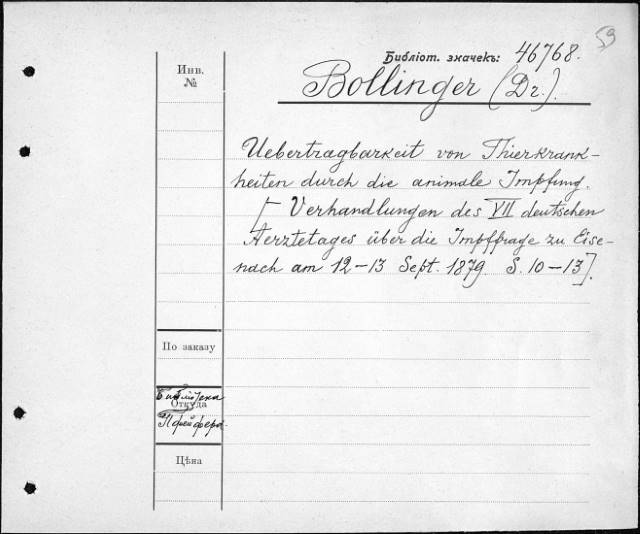 59
Библіот. значекъ: 46768.
Bollinger (Dr.).
Инв.
№
Uebertragbarkeit von Thierkrank-
heiten durch die animale Impfung.
[- Verhandlungen des VII deutschen
Aerztetages über die Impffrage zu Eise-
nach am 12-13 Sept. 1879 S. 10-13].
По заказу
Библіотека
Откуда
Пфейфера.
Цѣна